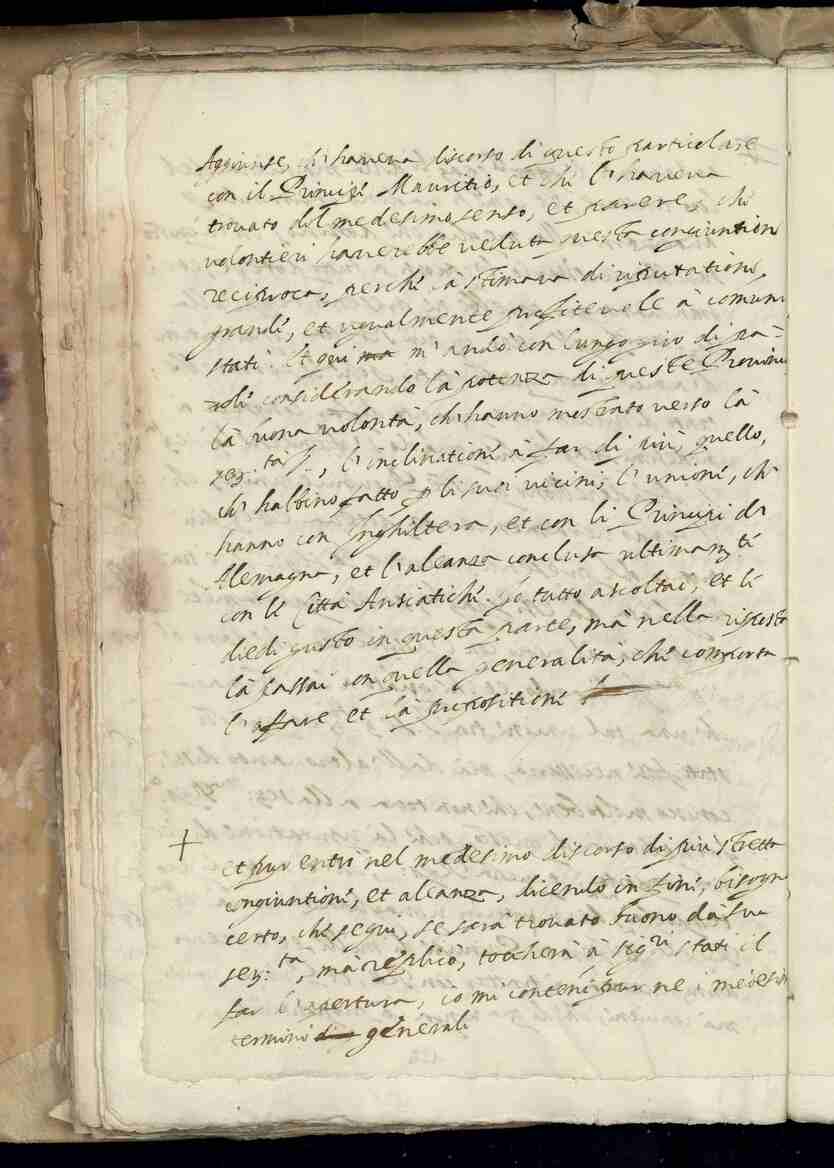 Aggiunse, ch'haveva discorso di questo particolare
con il Principe Mauritio, et che l'haveva
trovato del medesimo senso, et parere, che
volontieri haverebbe veduta questa congiuntione
reciproca, perche la stimava di riputatione
grande, et ugualmente profitevole à comuni
stati. Et qui m'andò con lungo giro di pa-
role considerando la potenza di queste Provincie
la buona volontà, ch'hanno mostrato verso la
ser:tà S., l'inclinatione à far di più quello,
ch'habbino fatto p li suoi vicini; l'unione, ch'
hanno con Inghilterra, et con li Principi di
Alemagna, et l'aleanza conclusa ultimamte
con le Città Ansiatiche. Io tutto ascoltai, et le
diedi gusto in questa parte, mà nella risposta
la passai in quella generalità, che comporta
l'affare et la propositione
+ et pur entrò nel medesimo discorso di più stretta
congiuntione, et aleanza, dicendo in fine, bisogna
certo, che segui, se sarà trovato buono dà sua
ser:tà, mà replicò, toccherà à sigri stati il
far l'apertura, io mi conteni pur ne i medesimi
termini generali